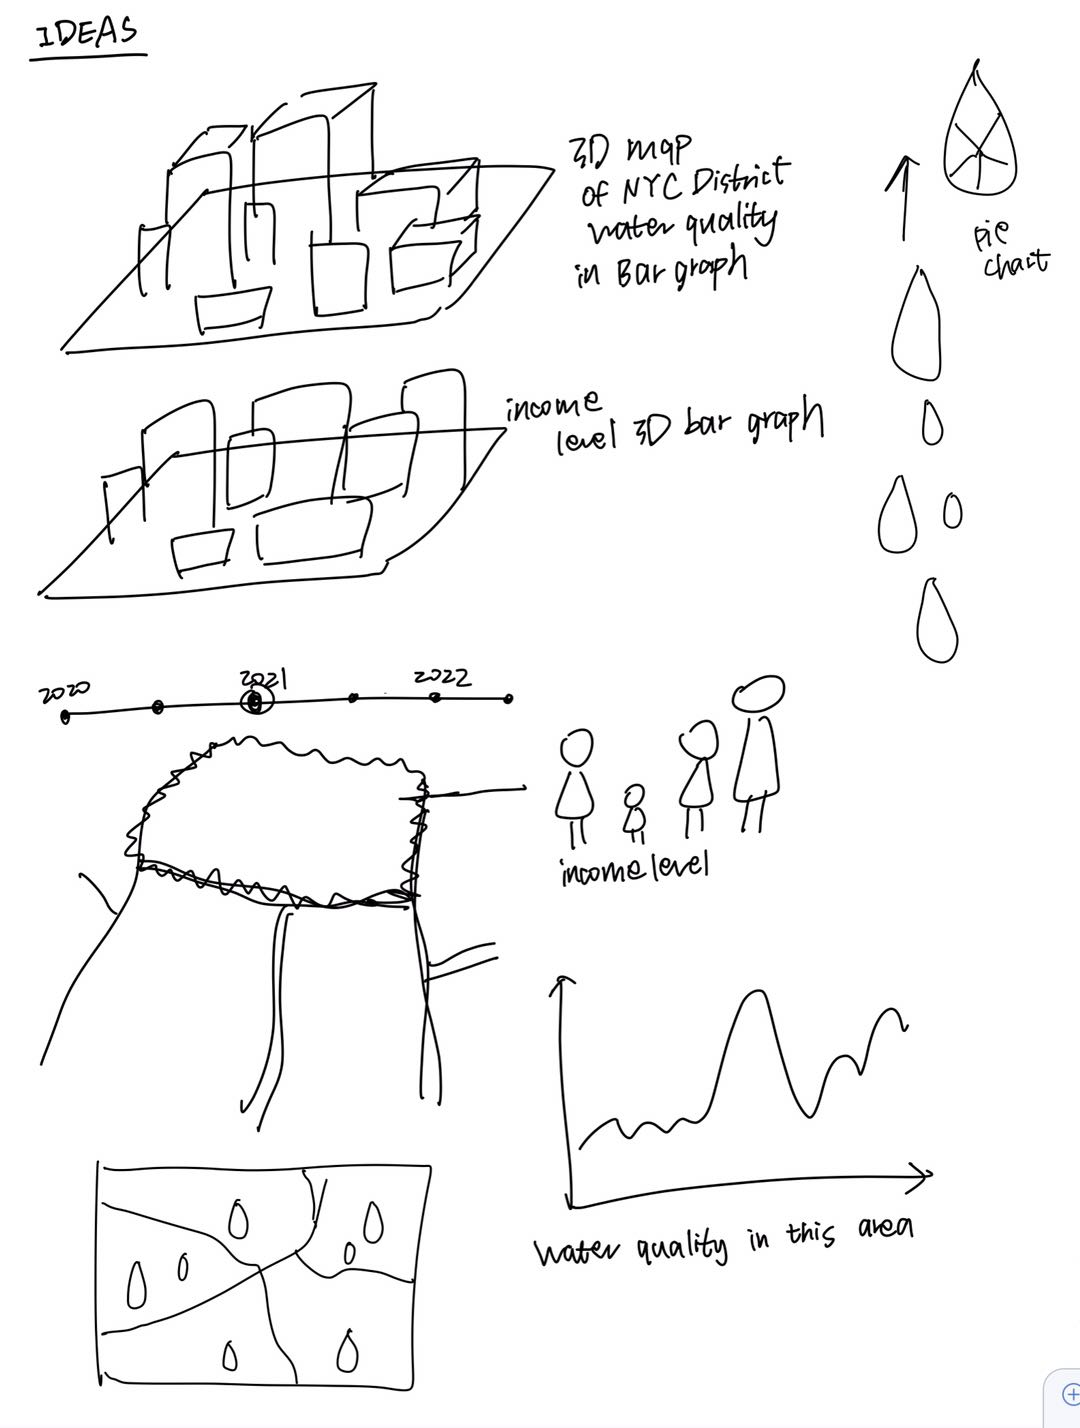 IDEAS
3D map
of NYC District
water quality
in Bar graph
pie
chart
income
level 3D bar graph
2020
2021
2022
income level
water quality in this area